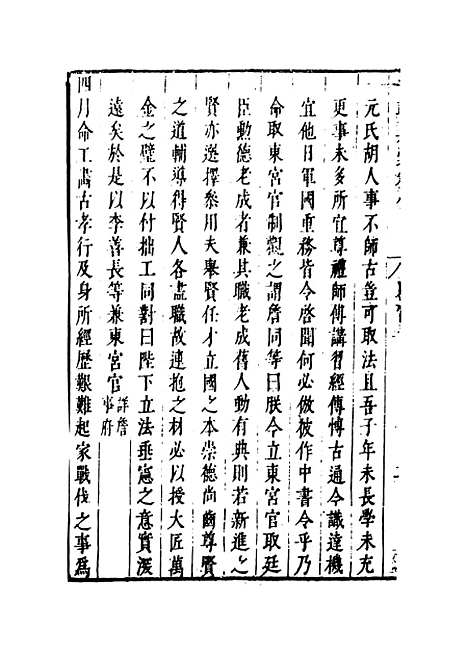 元氏胡人事不師古豈可取法且吾子年未長學未充
更事未多所宜尊禮師傅講習經傳博古通今識達機
宜他日軍國重務皆令啓聞何必倣彼作中書令乎乃
命取東宮官制觀之謂詹同等曰朕今立東宮官取廷
臣勳德老成者兼其職老成舊人動有典則若新進之
賢亦選擇參用夫舉賢任才立國之本崇德尚齒尊賢
之道輔導得賢人各盡職故連抱之材必以授大匠萬
金之璧不以付拙工同對曰陛下立法垂憲之意實深
遠矣於是以李善長等兼東宮官詳詹事府
四月命工畫古孝行及身所經歷艱難起家戰伐之事爲